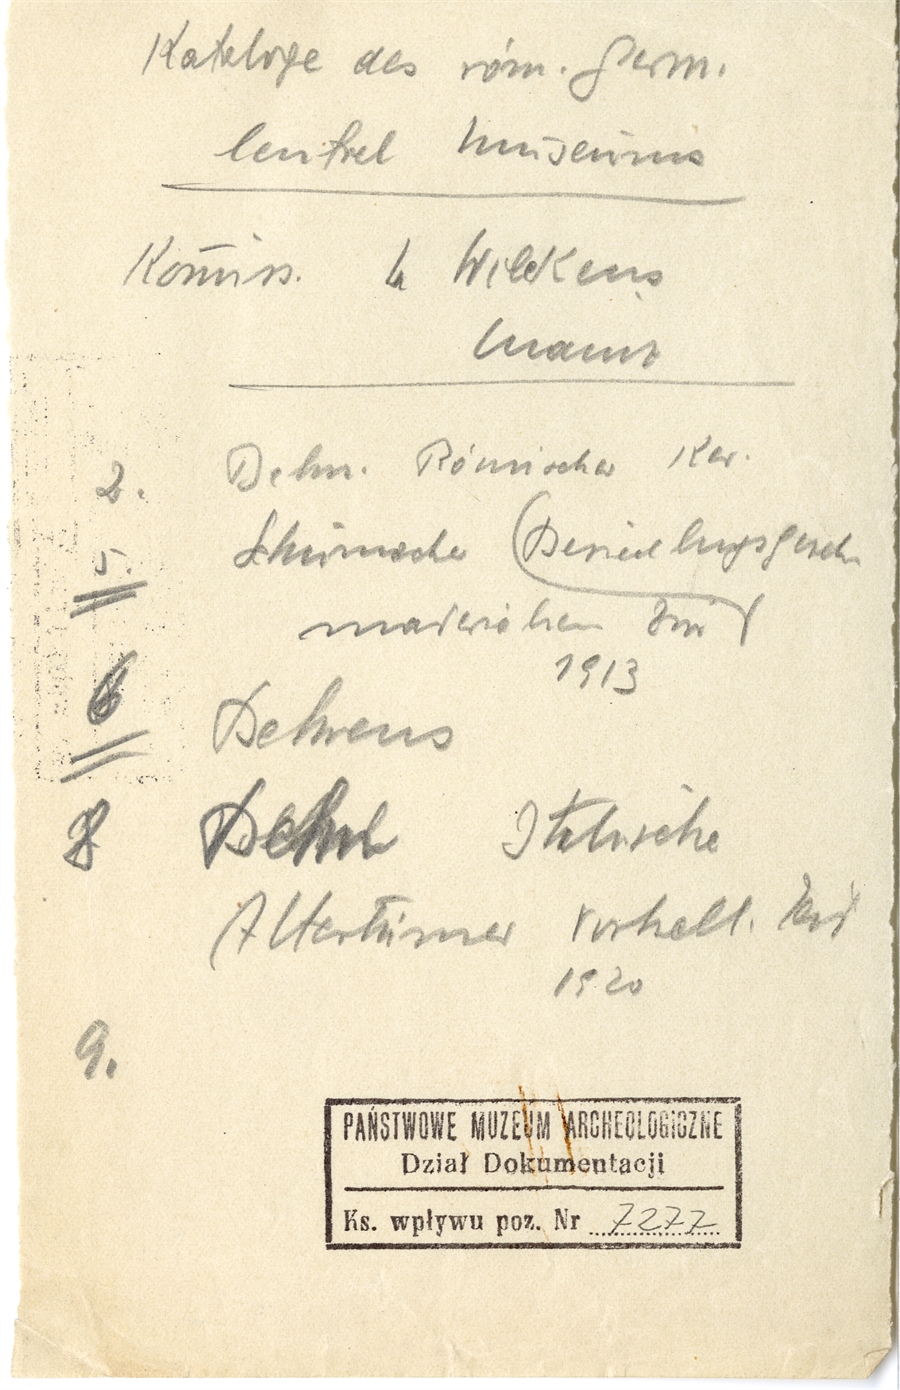 Kataloge des röm. Germ.
Central Museums
Komiss. L. Wilckens
Mainz
2. Behn. Römischer Ker.
5. Schumacher (Besiedlungsgesch.
materialien
1913
6 Behrens
8 Behn Italische
Altertümer vorhell. Zeit
1920
9.
PAŃSTWOWE MUZEUM ARCHEOLOGICZNE
Dział Dokumentacji
Ks. wpływu poz. Nr 7277